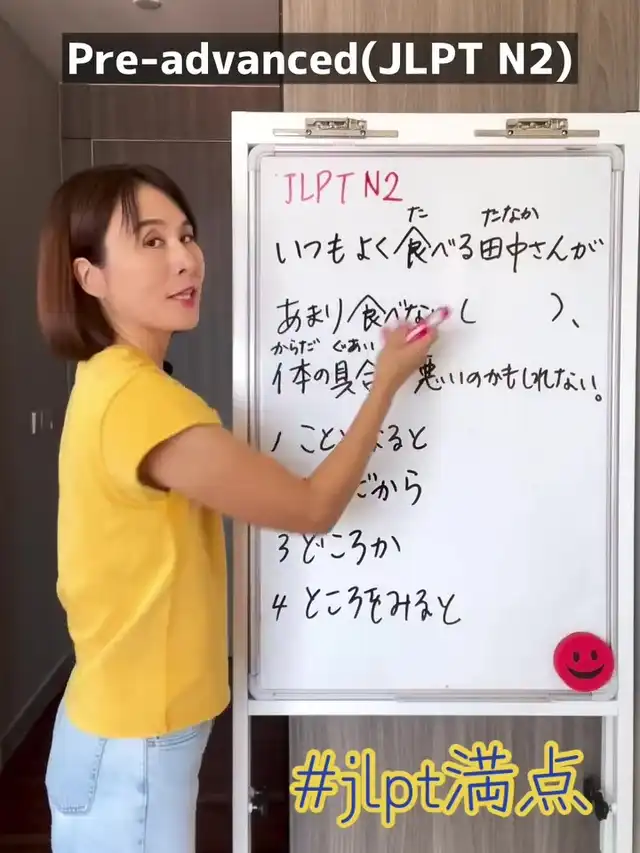 Pre-advanced(JLPT N2)
JLPT N2
た たなか
いつもよく食べる田中さんが
あまり食べな ( )、
からだ ぐあい
体の具合 悪いのかもしれない。
1 こと なると
だから
3 どころか
4 ところをみると
#jlpt満点